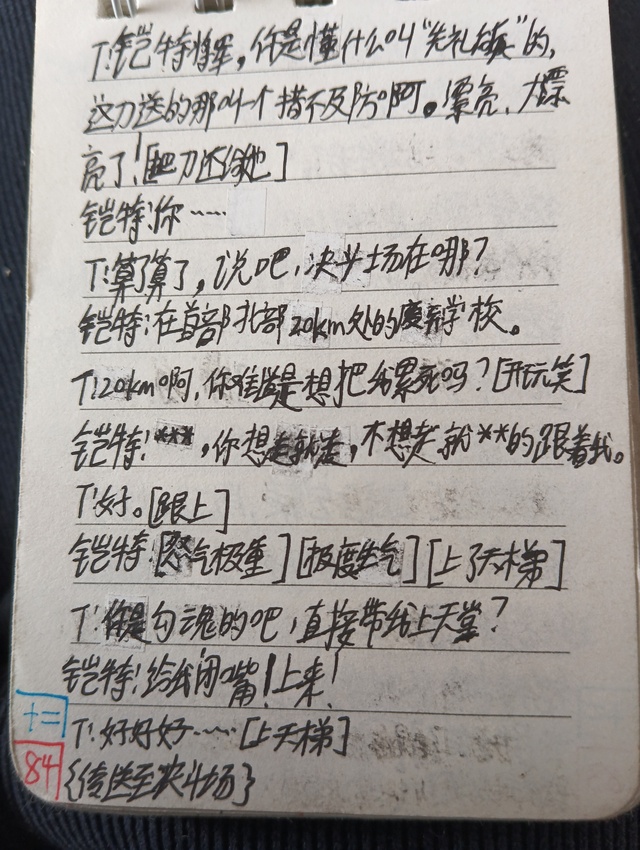 T:铠特将军，你是懂什么叫“先礼后兵”的，
这刀送的那叫一个措不及防啊。漂亮、太漂
亮了！[把刀还给他]
铠特:你……
T:算了算了，说吧，决斗场在哪？
铠特:在首部北部20km处的废弃学校。
T:20km啊，你难道是想把我累死吗？[开玩笑]
铠特:***，你想走就走，不想走就**的跟着我。
T:好。[跟上]
铠特[怒气极重][极度生气][上了天梯]
T:你是勾魂的吧，直接带我上天堂？
铠特:给我闭嘴！上来！
T:好好好……[上天梯]
十二
84
{传送至决斗场}